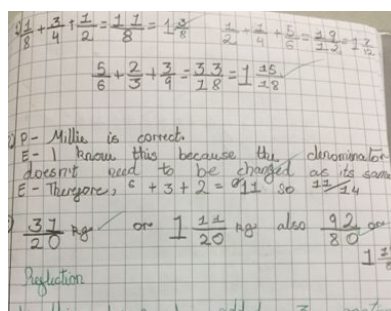 1/8 + 3/4 + 1/2 = 11/8 = 1 3/8   1/2 + 1/4 + 5/6 = 19/12 = 1 7/12
5/6 + 2/3 + 3/9 = 33/18 = 1 15/18
P - Millie is correct.
E - I know this because the denominator
doesn't need to be changed as its same
E - Therefore, 6 + 3 + 2 = 11 so 11/14
37/20 kg or 1 11/20 kg also 92/80 or
Reflection